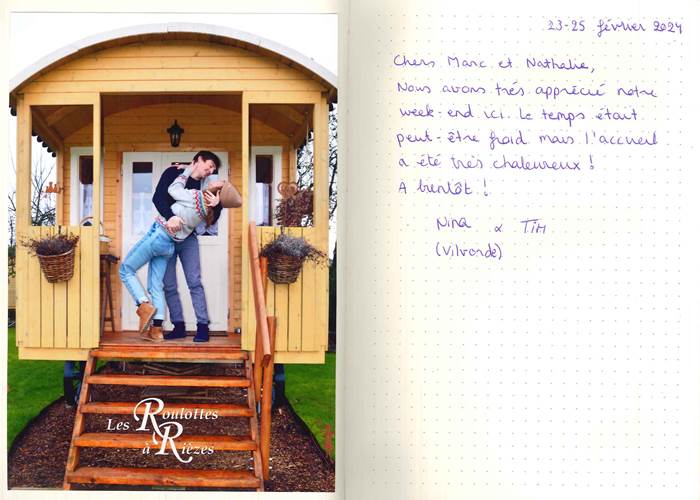 Les Roulottes
à Rièzes
23-25 février 2024
Chers Marc et Nathalie,
Nous avons très apprécié notre
week-end ici. Le temps était
peut-être froid mais l'accueil
a été très chaleureux !
A bientôt !
Nina & Tim
(Vilvorde)